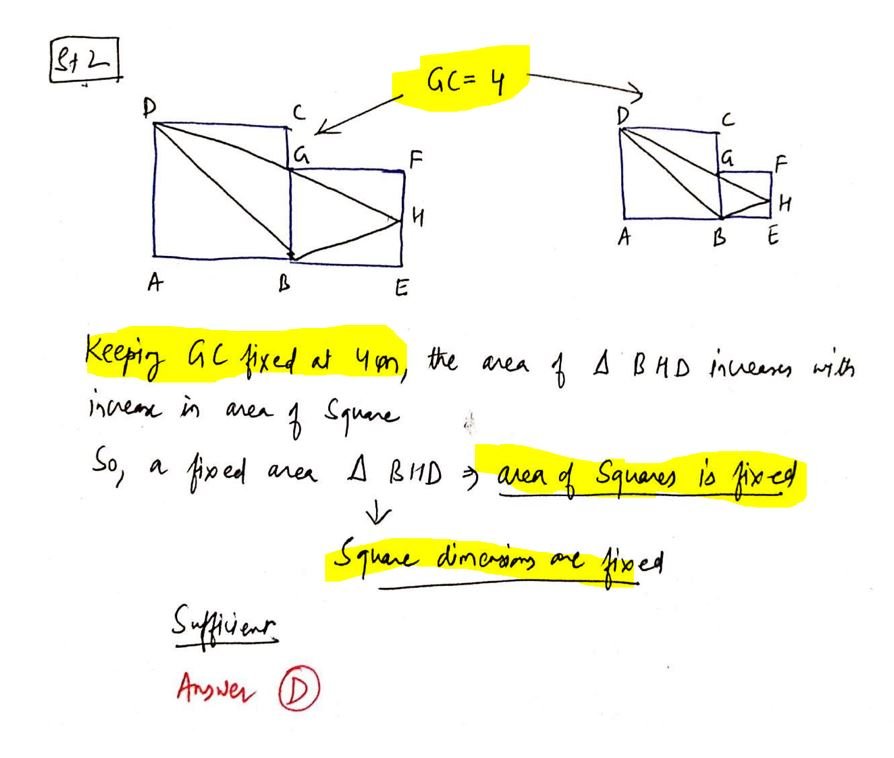 St 2
GC = 4
D C
G F
H
A B E
D C
G F
H
A B E
Keeping GC fixed at 4m, the area of Δ BHD increases with
increase in area of Square
So, a fixed area Δ BHD ⇒ area of Squares is fixed
↓
Square dimensions are fixed
Sufficient
Answer D